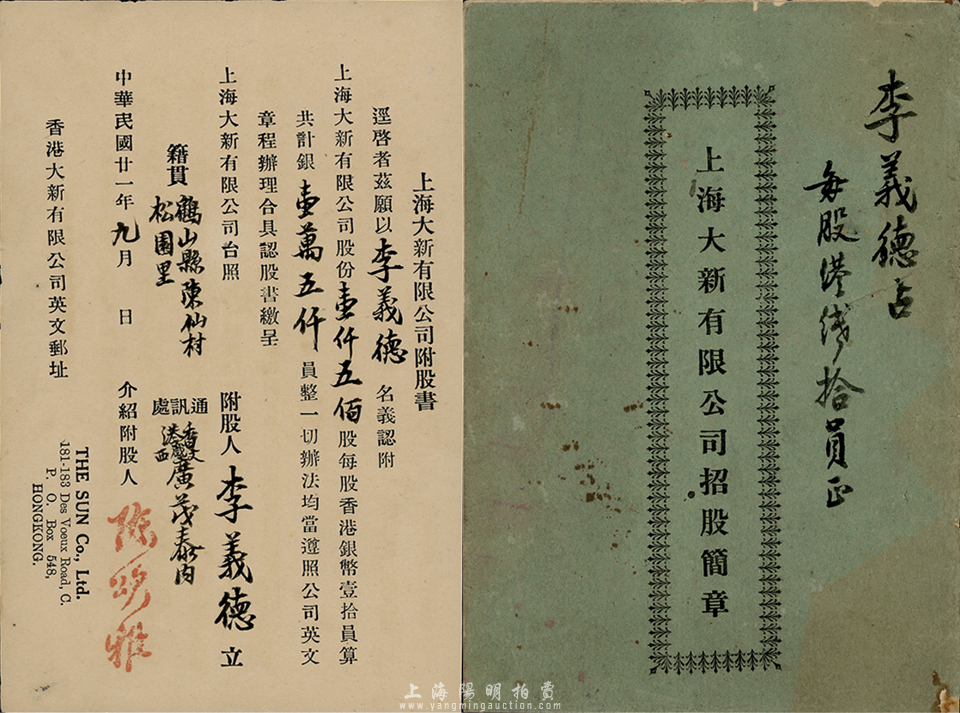 李義德占
每股港銭拾員正
上海大新有限公司招股簡章
上海大新有限公司附股書
逕啓者茲願以李義德名義認附
上海大新有限公司股份壹仟五佰股每股香港銀幣壹拾員算
共計銀壹萬五仟員整一切辦法均當遵照公司英文
章程辦理合具認股書繳呈
上海大新有限公司台照
附股人李義德立
籍貫鶴山縣陳仙村
松園里
通訊處
香港
西廣茂泰內
中華民國廿一年九月 日
介紹附股人
香港大新有限公司英文郵址
THE SUN Co., Ltd.
181-183 Des Voeux Road, C.
P. O. Box 548,
HONGKONG.
上海陽明拍賣
www.yangmingauction.com